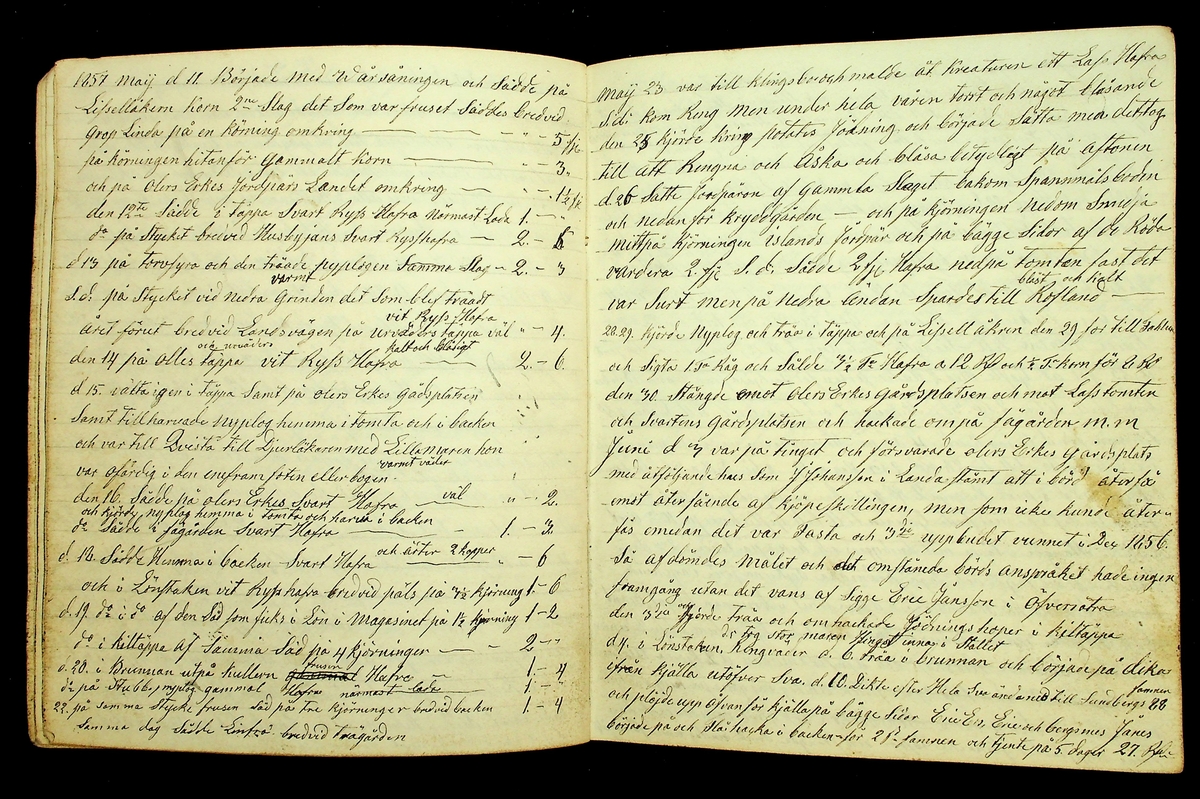 1857 Maij d 11. Började med Wårsåningen och Sådde på
Lissellåkern korn 2ne Slag det Som var fruset Såddes bredvid
Grop Linda på en körning omkring — 5 fj.
på körningen hitanför Gammalt korn — 3 "
och på Olers Erkes Jordpärs Landet omkring — 1½ fj
den 12te Sådde i täppa Svart Ryss Hafra närmast Lada 1. — "
do på Stycket bredvid Husbyjans Svart Rysshafra — 2. — 6
d 13 på torvfyra och den träade nyplogen Samma Slag — 2. — 3
varmt
S.d: på Stycket vid nedra Grinden det Som blef träadt
vit Ryss Hafra
året förut bredvid Landsvägen på urväders täppa väl " — 4.
och urväders kalt och blåsigt
den 14 på Olles täppa vit Ryss Hafra — 2. — 6.
d 15. välta igen i täppa Samt på Olers Erkes Gådsplatsen
Samt tillharvade nyplog hemma i tomta och i backen
och var till Qvista till Djurläkaren med Lillamaren hon
var ofärdig i den ene framfoten eller bogen.
varmt väder
den 16. Sådde på Olers Erkes Svart Hafra — väl " — 2.
och kjörde nyplog hemma i tomta och harva i backen
do Sådde i fågården Svart Hafra — 1. — 3.
och ärter 2 kopper
d. 18. Sådde Hemma i backen Svart Hafra — " — 6
och i Lönstaken vit Ryss hafra bredvid päls på 7½ kjörning 1 — 6
d. 19. do i do af den Säd som ficks i Lån i Magasinet på 1½ kjörning 1 — 2
do i Kiltäppa af Samma Säd på 4 kjörninger — 2 — "
d. 20. i Brunnan utpå kullern frusen Hafre — 1. — 4
do på Stubb, nyplog gammal Hafra närmast lada — 1. — 2
22. på Samma Stycke frusen Säd på tre kjörninger bredvid backen 1 — 4
Samma dag Sådde Linfrö bredvid trägården
Maij 23 var till Klingsbo och malde åt kreaturen ett Lass Hafra
S.d: kom Reng Men under hela våren torrt och något blåsande
den 25 kjörde kring potatis Jödning och började Sätta men det tog
till att Rengna och Åska och blåsa betydligt på aftonen
d. 26 Satte Jordpäron af Gammla Slaget bakom Spannmåls boden
och nedanför kryddgården — och på kjörningen nedom Smidja
mittpå kjörningen islands Jordpär och på bägge Sidor af de Röda
vardera 2. fj: S.d: Sådde 2 fj: Hafra nedpå tomten fast det
blåst och kalt
var Surt men på nedra Ändan Spardes till Rofland —
28. 29. kjörde nyplog och träa i täppa och på Lissellåkren den 29 for till Fahlun
och Sigta Råg och Sålde 3½ Tr Hafra a 12 Rd och ½ Tr korn för 6 Rd
den 30. Stängde emot Olers Erkes gårdsplatsen och mot Lasstomten
och Svartens Gårdsplatsen och hackade om på fågården m.m
Juni d 3 var på tinget och försvarade Olers Erkes gårdsplats
med åtföljande hus Som J Johansson i Landa Stämt att i börd återfå
emot återfående af kjöpeskillingen, men som icke kunde åter-
fås emedan det var Fasta och 3die uppbudet vunnet i Dec 1856.
Så afdömdes målet och omstämda börds anspråket hade ingen
framgång utan det vans af Sigge Eric Jansson i Öfversätra
den 3dia kjörde träa och omhackade Jödningshoper i kiltäppa
då tog Stor maren hingst inna i Stallet
d 4. i Lönstaken, d. 6 träa i brunnan och början på dika
ifrån kjälla utöfver Sva. d. 10. Dikte efter Hela Sva till Sundbergs 88 famnen
och plöjde upp ofvanför kjälla på bägge Sidor Eric Ers, Eric och bergsmes Jänes
började på och Slå hacka i backen för 2 famnen och tjente på 5 dager 27.